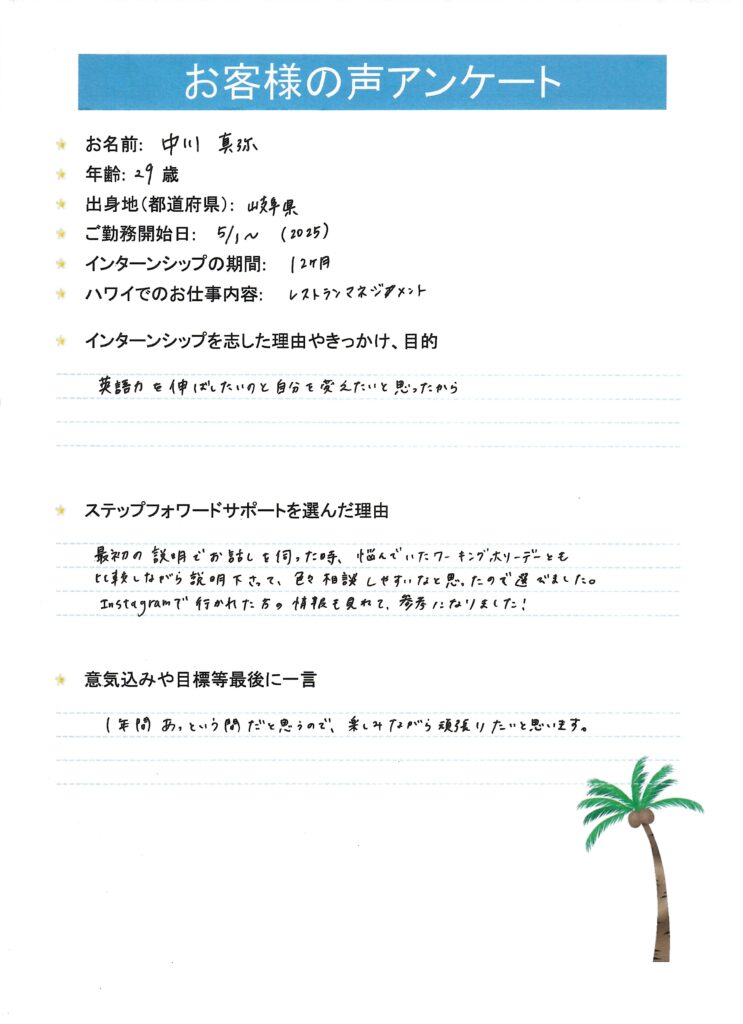 お客様の声アンケート
お名前: 中川 真弥
年齢: 29 歳
出身地(都道府県): 岐阜県
ご勤務開始日: 5/1~ (2025)
インターンシップの期間: 12ヶ月
ハワイでのお仕事内容: レストランマネジメント
インターンシップを志した理由やきっかけ、目的
英語力を伸ばしたいのと自分を変えたいと思ったから
ステップフォワードサポートを選んだ理由
最初の説明でお話しを伺った時、悩んでいたワーキングホリーデーとも
比較しながら説明下さって、色々相談しやすいなと思ったので選びました。
Instagramで行かれた方の情報も見れて、参考になりました!
意気込みや目標等最後に一言
1年間あっという間だと思うので、楽しみながら頑張りたいと思います。